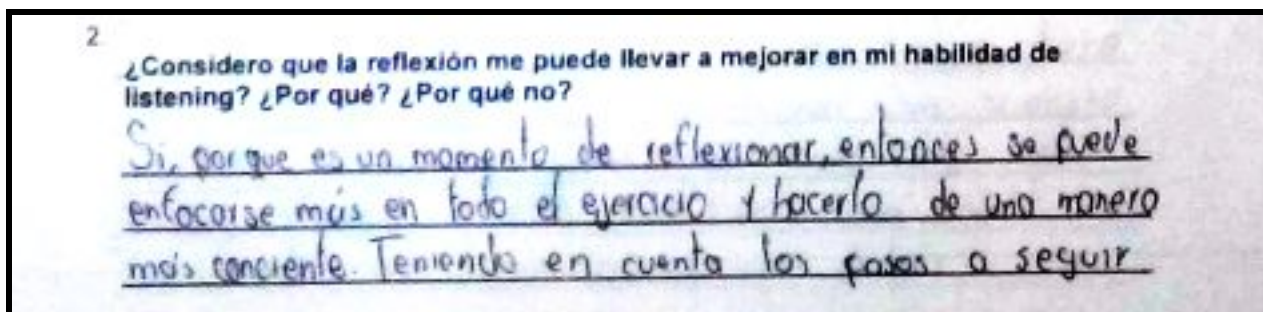 2
¿Considero que la reflexión me puede llevar a mejorar en mi habilidad de
listening? ¿Por qué? ¿Por qué no?
Si, porque es un momento de reflexionar, entonces se puede
enfocarse más en todo el ejercicio y hacerlo de una manera
más conciente. Teniendo en cuenta los pasos a seguir